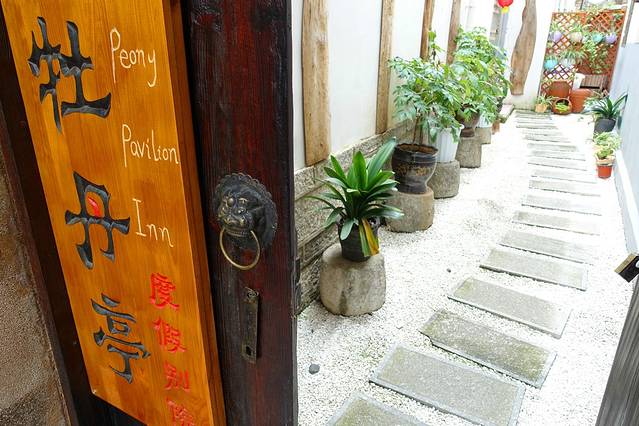 牡丹亭
Peony
Pavilion
Inn
度假别院